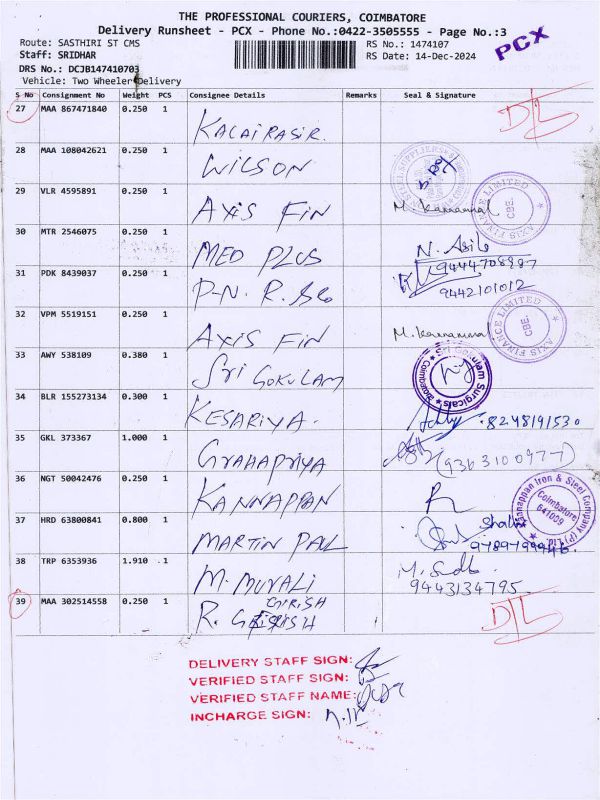 THE PROFESSIONAL COURIERS, COIMBATORE
Delivery Runsheet - PCX - Phone No.:0422-3505555 - Page No.:3
PCX
Route: SASTHIRI ST CMS
RS No.: 1474107
Staff: SRIDHAR
RS Date: 14-Dec-2024
DRS No.: DCJB147410703
Vehicle: Two Wheeler Delivery
S No Consignment No Weight PCS Consignee Details Remarks Seal & Signature
27 MAA 867471840 0.250 1 KALAIRASIR DTL
28 MAA 108042621 0.250 1 WILSON
29 VLR 4595891 0.250 1 AXIS FIN M. AXIS FINANCE LIMITED CBE.
30 MTR 2546075 0.250 1 MED PLUS N. 9444708987
31 PDK 8439037 0.250 1 P.N. R. 9442101012
32 VPM 5519151 0.250 1 AXIS FIN M. AXIS FINANCE LIMITED CBE.
33 AWY 538109 0.380 1 SRI GOKULAM Sri Gokulam Surgicals Coimbatore
34 BLR 155273134 0.300 1 KESARIYA. 8248191530
35 GKL 373367 1.000 1 GRAHAPRIYA (9363100977)
36 NGT 50042476 0.250 1 KANNAPPAN Kannappan Iron & Steel Company (P) Ltd. Coimbatore 641009
37 HRD 63800841 0.800 1 MARTIN PAL
38 TRP 6353936 1.910 1 M. MURALI 9443134795
39 MAA 302514558 0.250 1 R. GIRISH DTL
DELIVERY STAFF SIGN:
VERIFIED STAFF SIGN:
VERIFIED STAFF NAME:
INCHARGE SIGN: